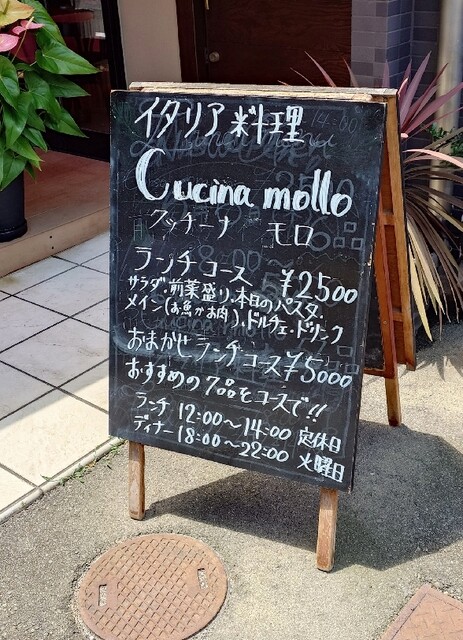 イタリア料理
Cucina mollo
クッチーナ モロ
ランチコース ¥2500
サラダ.前菜盛り.本日のパスタ.
メイン(お魚かお肉).ドルチェ.ドリンク
おまかせランチコース¥5000
おすすめの7品をコースで!!
ランチ 12:00〜14:00 定休日
ディナー 18:00〜22:00 火曜日